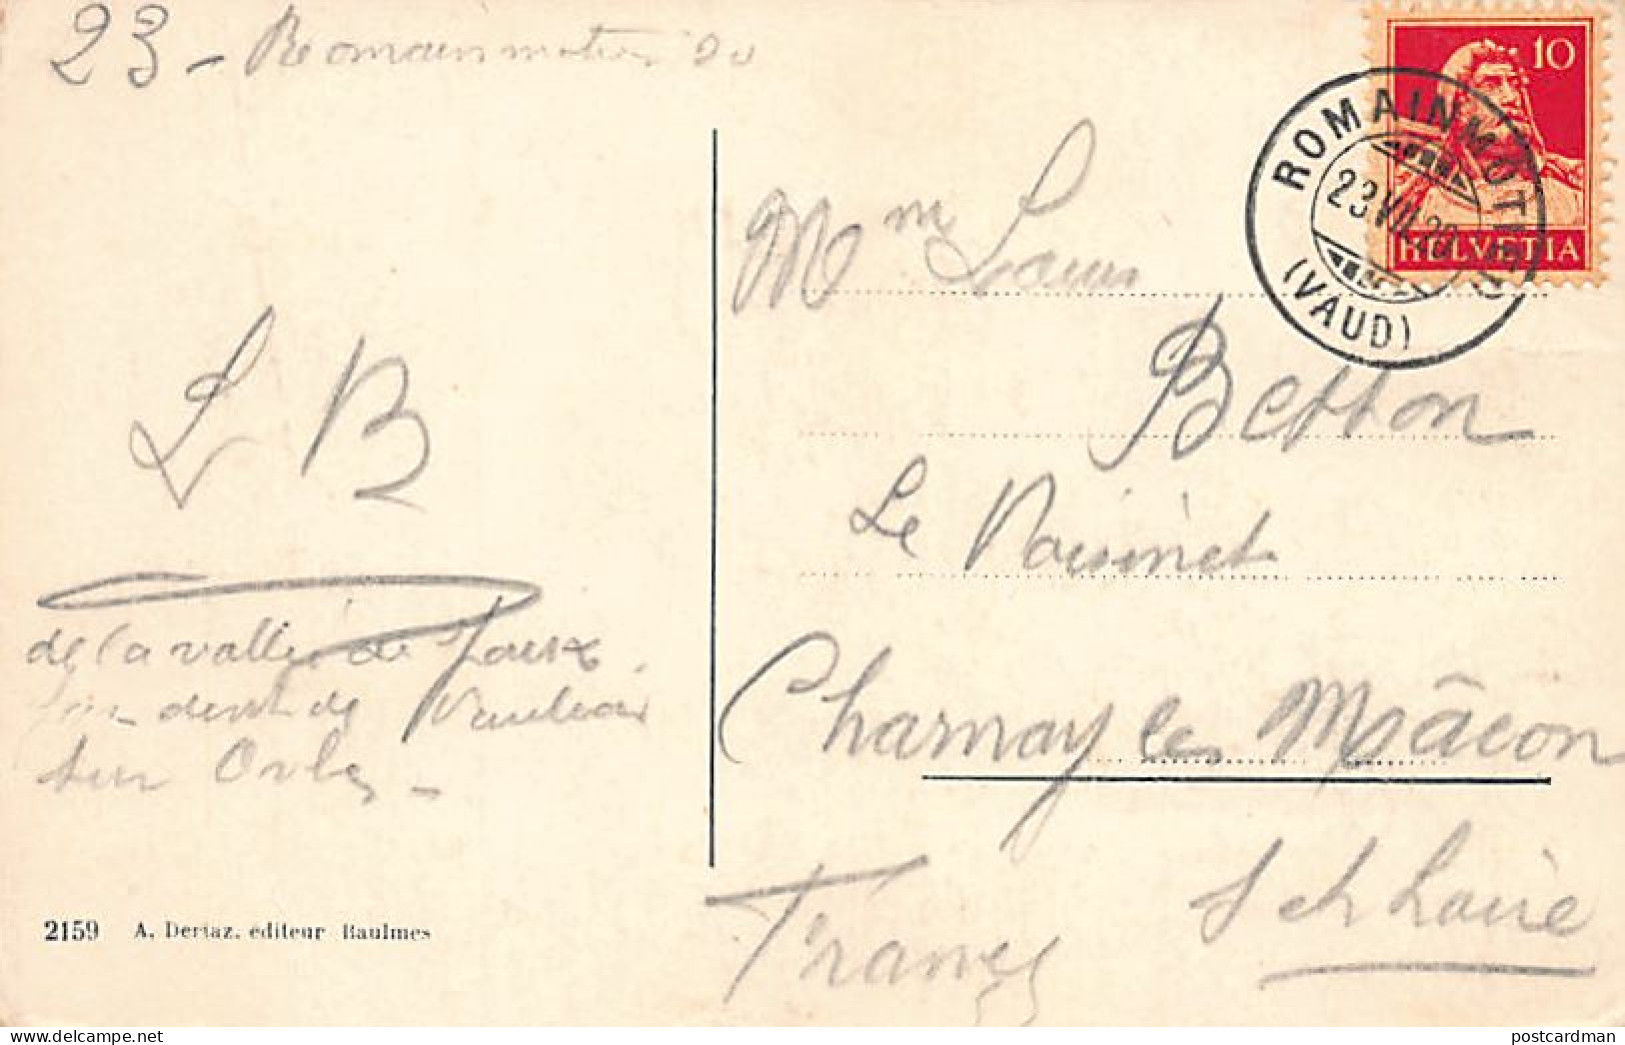 23 - Romainmotier 20
10
ROMAINMÔTIER
23.VII.20
HELVETIA
(VAUD)
Mme Louis
Betton
Le Voisinet
Charnay les Mâcon
S et Loire
France
L B
de la vallée de Joux
dent de Vaulion
sur Orbe -
2159 A. Deriaz, éditeur Baulmes
delcampe.net
postcardman